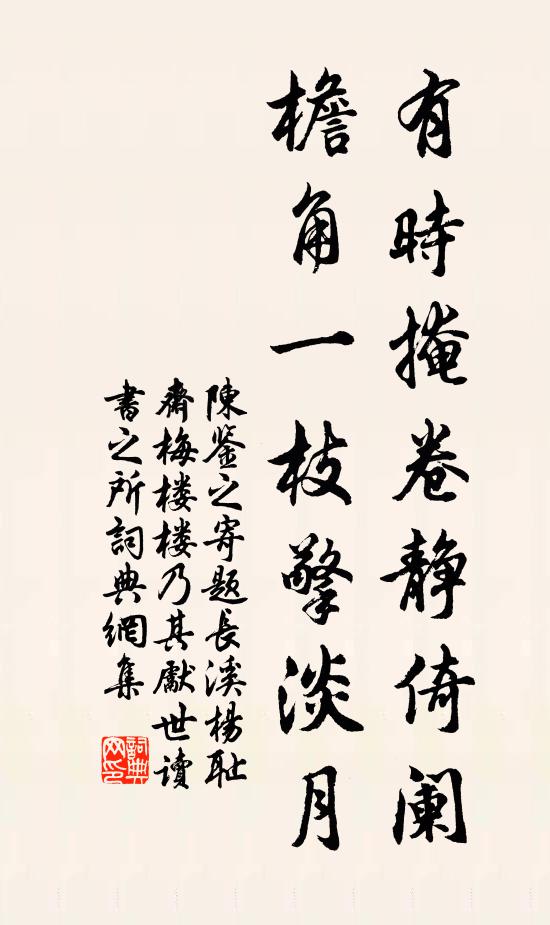 有時掩卷靜倚阑
檐角一枝擎淡月
陳鉴之寄題長溪楊耻
齋梅楼楼乃其獻世讀
書之所詞典網集
詞典网印